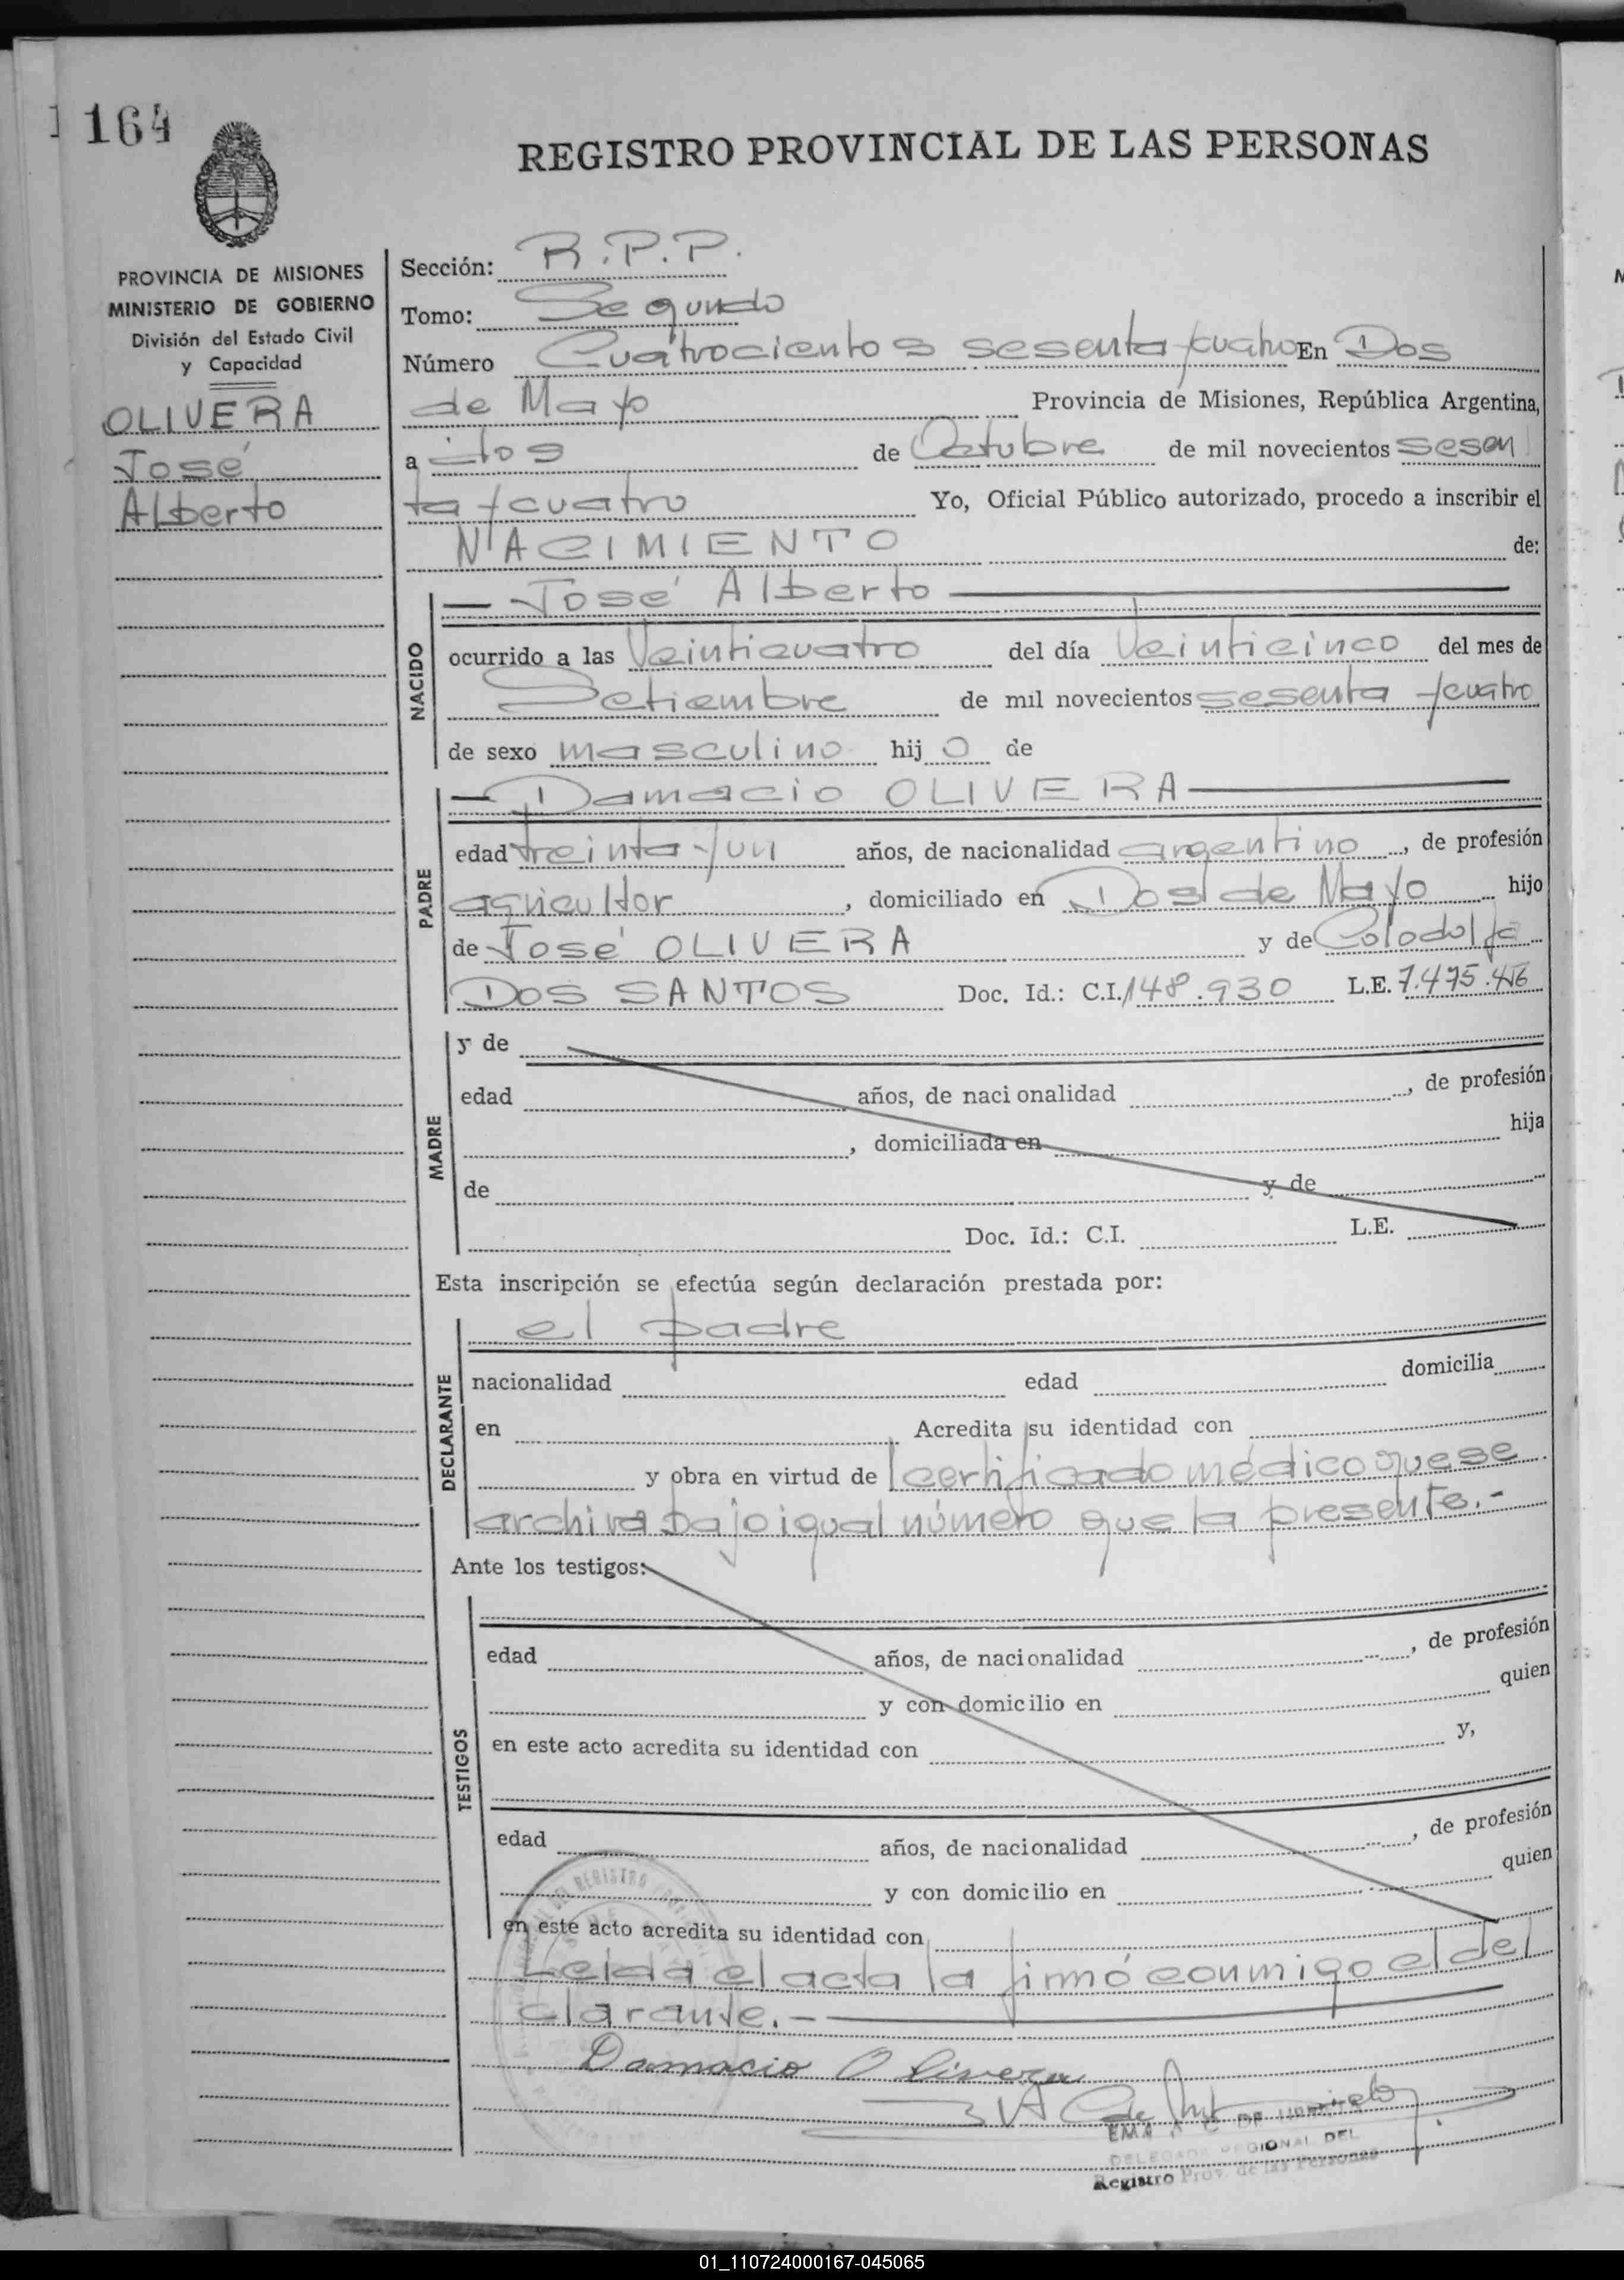 164
REGISTRO PROVINCIAL DE LAS PERSONAS
PROVINCIA DE MISIONES
MINISTERIO DE GOBIERNO
División del Estado Civil
y Capacidad
OLIVERA
José
Alberto
Sección: R.P.P.
Tomo: Segundo
Número Cuatrocientos sesenta y cuatro En Dos
de Mayo Provincia de Misiones, República Argentina,
a dos de Octubre de mil novecientos sesen
ta y cuatro Yo, Oficial Público autorizado, procedo a inscribir el
NACIMIENTO de:
NACIDO
José Alberto
ocurrido a las Veinticuatro del día Veinticinco del mes de
Setiembre de mil novecientos sesenta y cuatro
de sexo masculino hij o de
PADRE
Damacio OLIVERA
edad treinta y un años, de nacionalidad argentino, de profesión
agricultor, domiciliado en Dos de Mayo hijo
de José OLIVERA y de
DOS SANTOS Doc. Id.: C.I. 148.930 L.E. 7.475.416
MADRE
y de
edad años, de nacionalidad , de profesión
, domiciliada en hija
de y de
Doc. Id.: C.I. L.E.
Esta inscripción se efectúa según declaración prestada por:
DECLARANTE
el padre
nacionalidad edad domicilia
en Acredita su identidad con
y obra en virtud de certificado médico que se
archiva bajo igual número que la presente.-
Ante los testigos:
TESTIGOS
edad años, de nacionalidad , de profesión
y con domicilio en quien
en este acto acredita su identidad con y,
edad años, de nacionalidad , de profesión
y con domicilio en quien
en este acto acredita su identidad con
Leida el acta la firmó conmigo el de
clarante.-
Damacio Olivera
EMA DE
DELEGADA REGIONAL DEL
Registro Prov. de las Personas
01_110724000167-045065